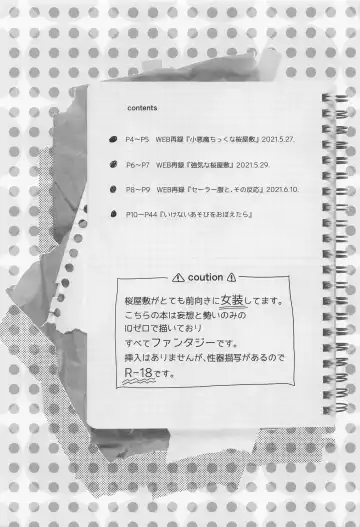 contents
P4〜P5 WEB再録『小悪魔ちっくな桜屋敷』2021.5.27.
P6〜P7 WEB再録『強気な桜屋敷』2021.5.29.
P8〜P9 WEB再録『セーラー服と、その反応』2021.6.10.
P10〜P44『いけないあそびをおぼえたら』
⚠ coution ⚠
桜屋敷がとても前向きに女装してます。
こちらの本は妄想と勢いのみの
IQゼロで描いており
すべてファンタジーです。
挿入はありませんが、性器描写があるので
R-18です。